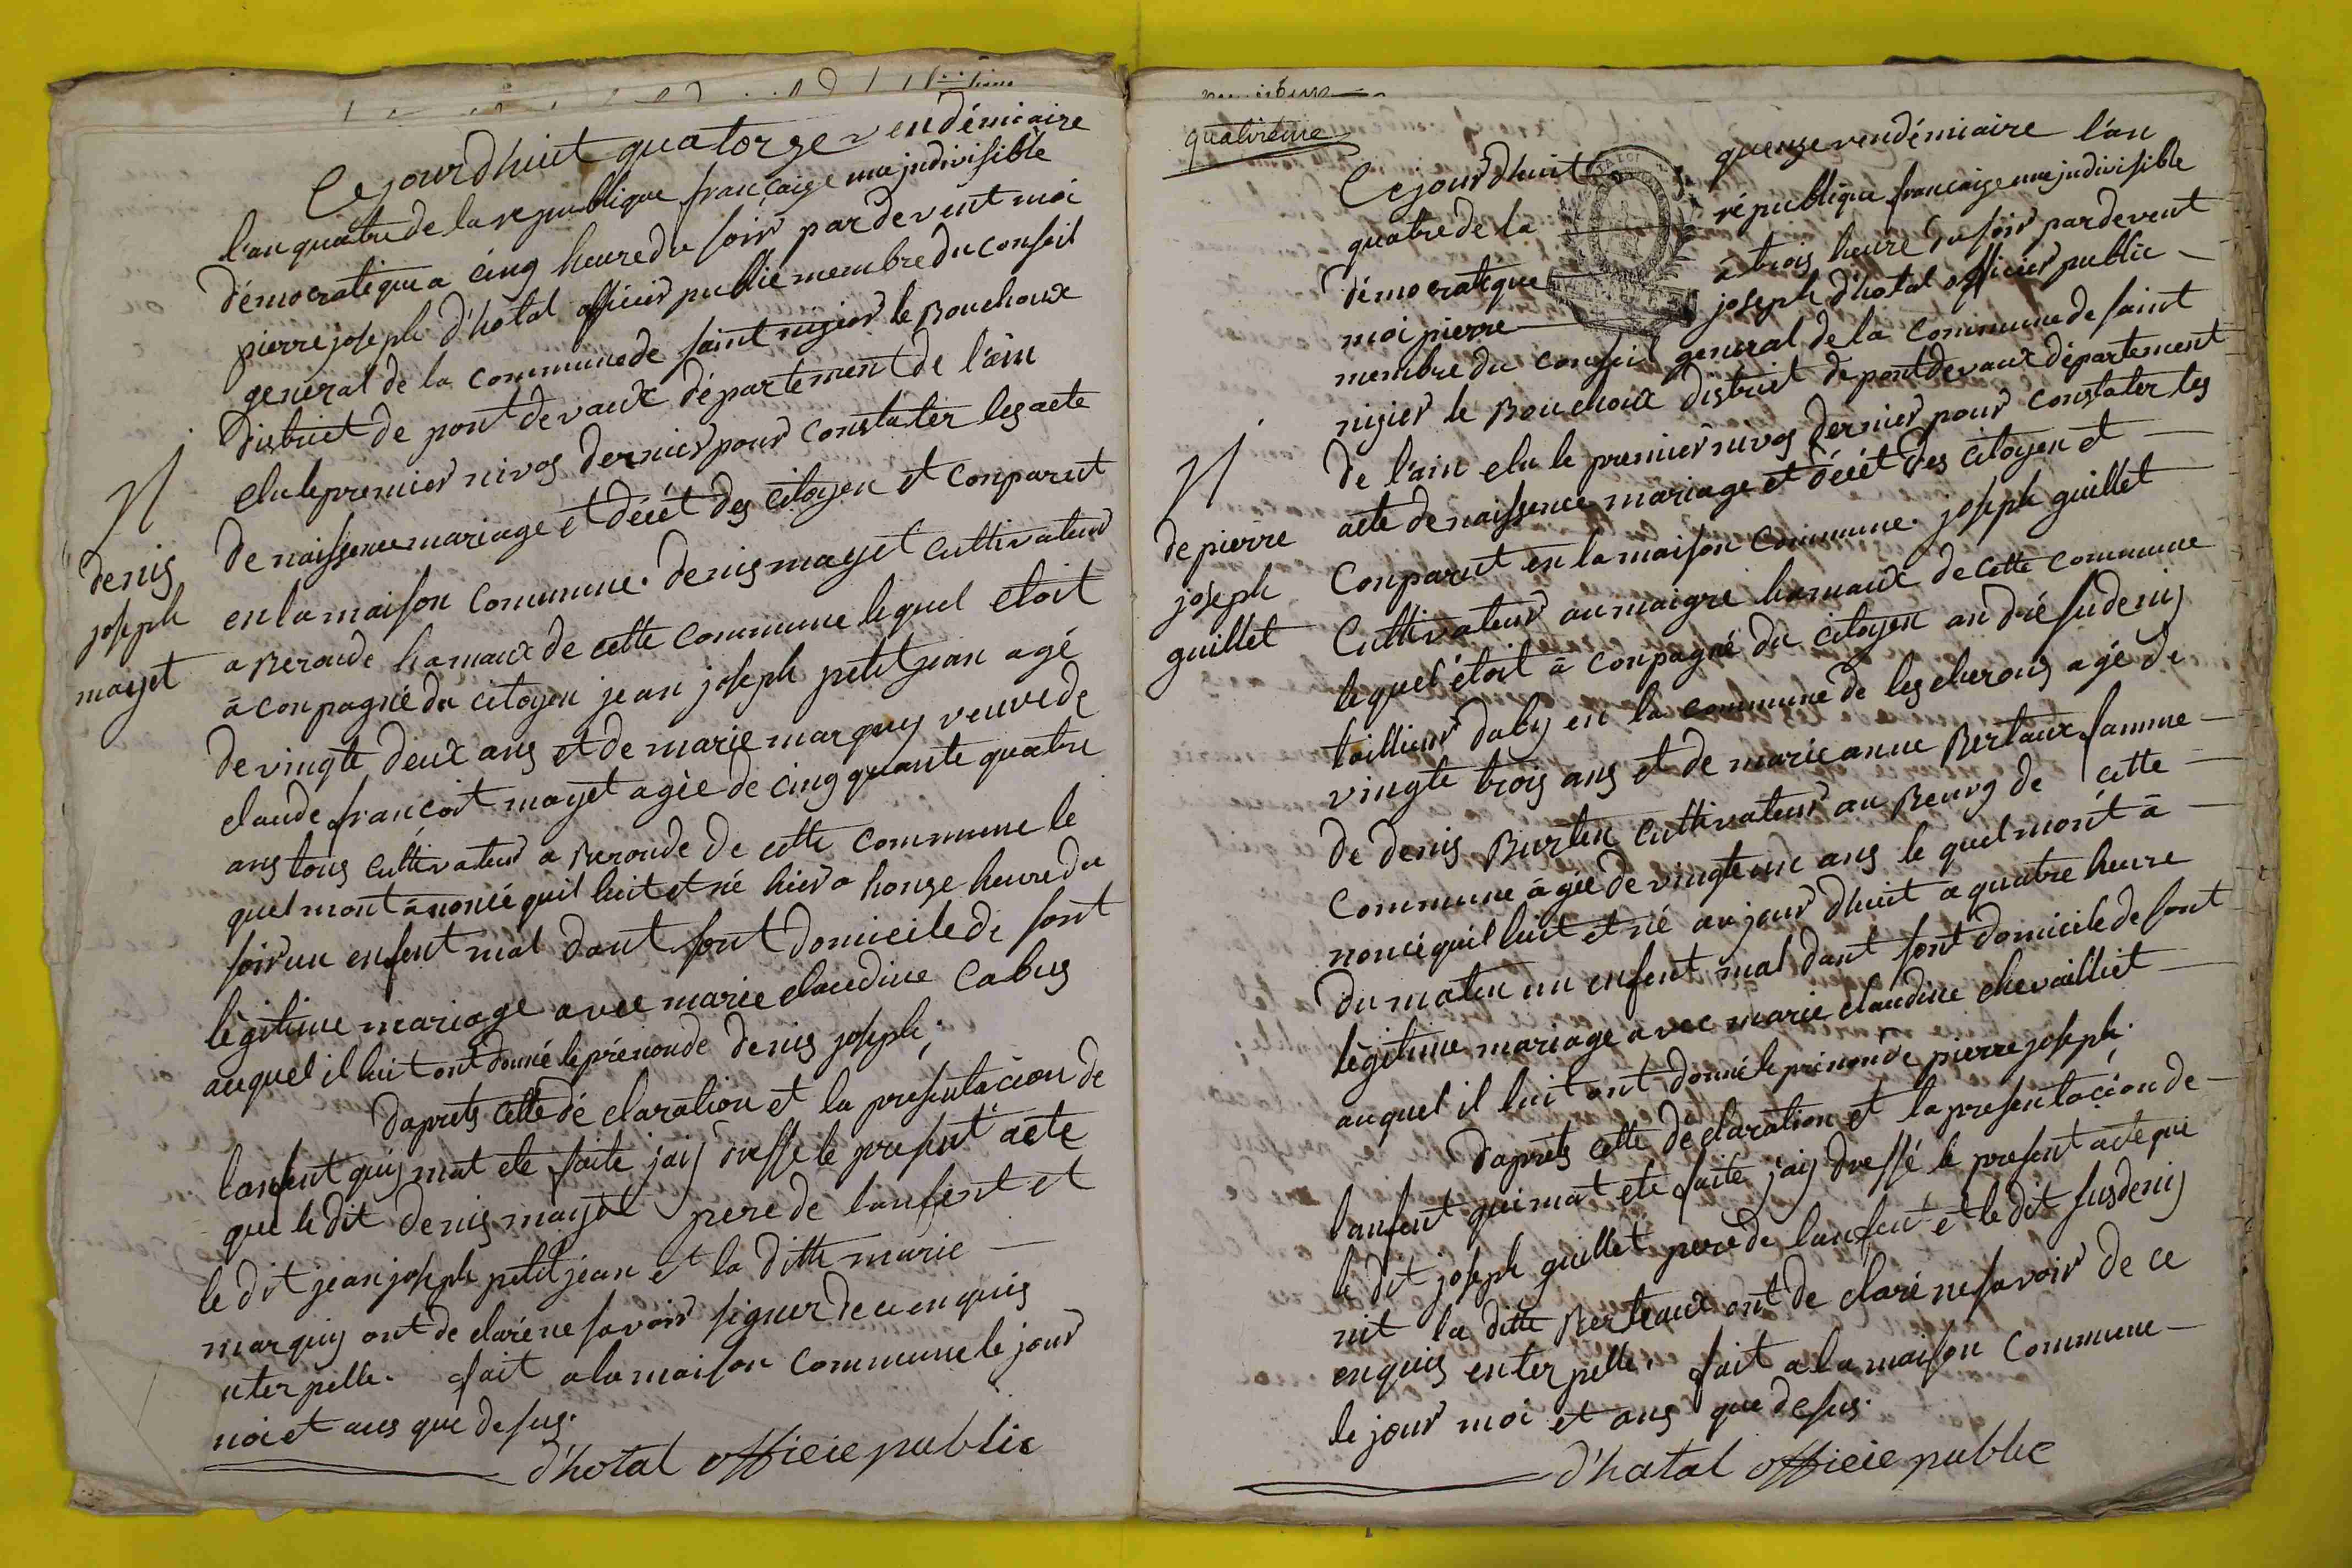 Ce jourdhuit quatorze vendémiaire
l'an quatre de la republique françaige une jndivisible
démocratique a cinq heure du soir par devent moi
pierre joseph d'hotal officier public membre du conseil
general de la commune de saint nizier le Bouchoux
district de pont de vaux département de l'ain
elu le premier nivos dernier pour constater les acte
N
de naissence mariage et décét des citoyen et conparut
denis
joseph
mayet
en la maison commune. denis mayet cultivateur
a Beronde hamaux de cette commune lequel etoit
a conpagné du citoyen jean joseph petitjean agé
de vingte deux ans et de marie marquis veuve de
claude françoit mayet agée de cinqquante quatre
ans tous cultivateur a Beronde de cette commune le
quel mont anoncé quil luit et né hier a honze heure du
soir un enfent mal dont sont domicile de sont
légitime mariage avec marie claudine Cabus
auquel il luit ont donné le prénon de denis joseph;
daprets cette dé claration et la presentacion de
lanfent quiy mat ete faite jaiy dressé le present acte
que le dit denis mayet pere de lanfent et
le dit jean joseph petitjean et la ditte marie
marquis ont de claré ne savoir signer de ce en quis
nterpelle. fait a la maison commune le jour
moi et ans que desus.
d'hotal officie public
quatrième
Ce jour d'huit quenze vendémiaire l'an
quatre de la république françaige une jndivisible
démocratique à trois heure du soir par devent
moi pierre joseph d'hotal officier public
membre du conseil general de la commune de saint
nizier le Bouchoux district de pont de vaux département
de l'ain elu le premier nivos dernier pour constater les
N
de pierre
joseph
guillet
acte de naissence mariage et décét des citoyen et
Conparut en la maison commune. joseph guillet
Cultivateur au maigre hamaux de cette commune
lequel étoit à conpagné du citoyen andré sudeniy
tailleur daby en la commune de lescherous agé de
vingte trois ans et de marie anne Bertaux famme
de denis Burtin cultivateur au Beurg de cette
commune àgée de vingte un ans le quel mont à
noncé quil luit et né aujour dhuit a quatre heure
du matin un enfent mal dant sont domicile de sont
légitime mariage avec marie claudine chevailliet
auquel il luit ont donné le prénon de pierre joseph.
daprets cette déclaration et la presentacion de
lanfent qui mat ete faite jaiy dressé le present acte que
le dit joseph guillet pere de lanfent et le dit susdeniy
nit la ditte Berteaux ont de claré ne savoir de ce
enquis enterpelle. fait a la maison commune
le jour moi et ans que desus.
d'hatal officie public